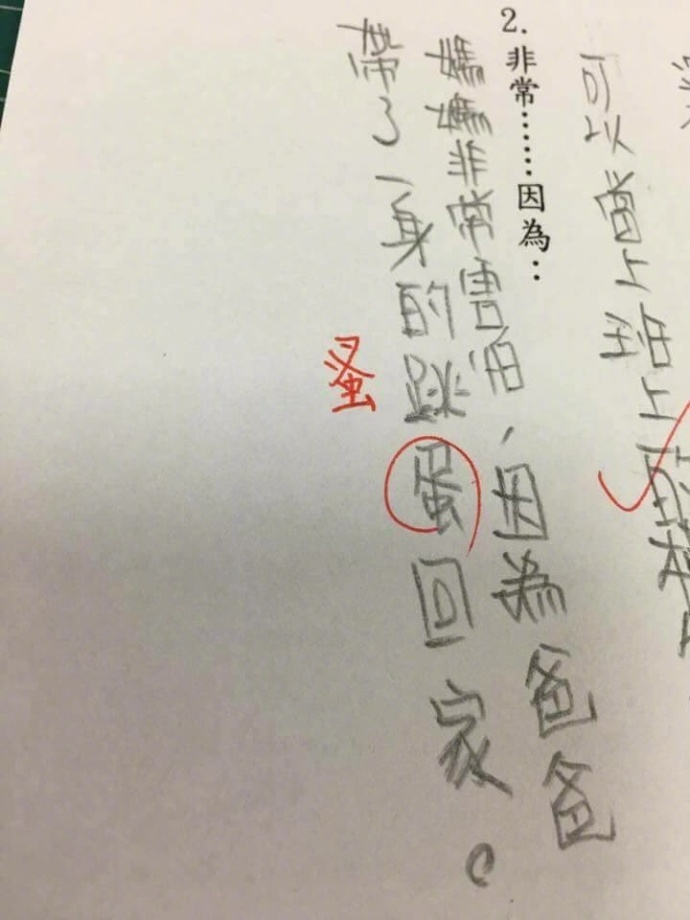 可以當上班上
2.非常……因為：
媽媽非常害怕，因為爸爸
帶了一身的跳蛋回家。
蚤